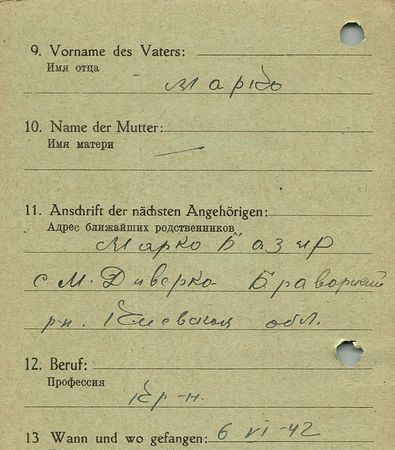 9. Vorname des Vaters:
Имя отца
Марко
10. Name der Mutter:
Имя матери
—
11. Anschrift der nächsten Angehörigen:
Адрес ближайших родственников
Марко Базир
с М. Диверка
р-н. Киевская обл.
12. Beruf:
Профессия
кр-н.
13 Wann und wo gefangen: 6 VI-42